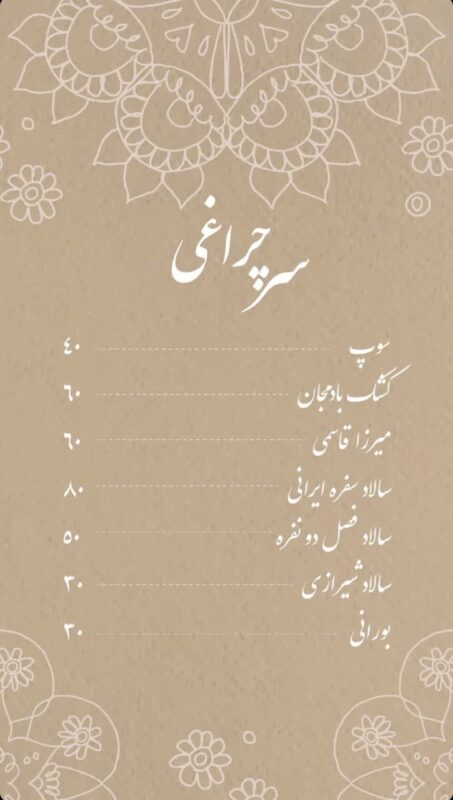 سرچراغی
سوپ ۴۰
کشک بادمجان ۶۰
میرزا قاسمی ۶۰
سالاد سفره ایرانی ۸۰
سالاد فصل دو نفره ۵۰
سالاد شیرازی ۳۰
بورانی ۳۰